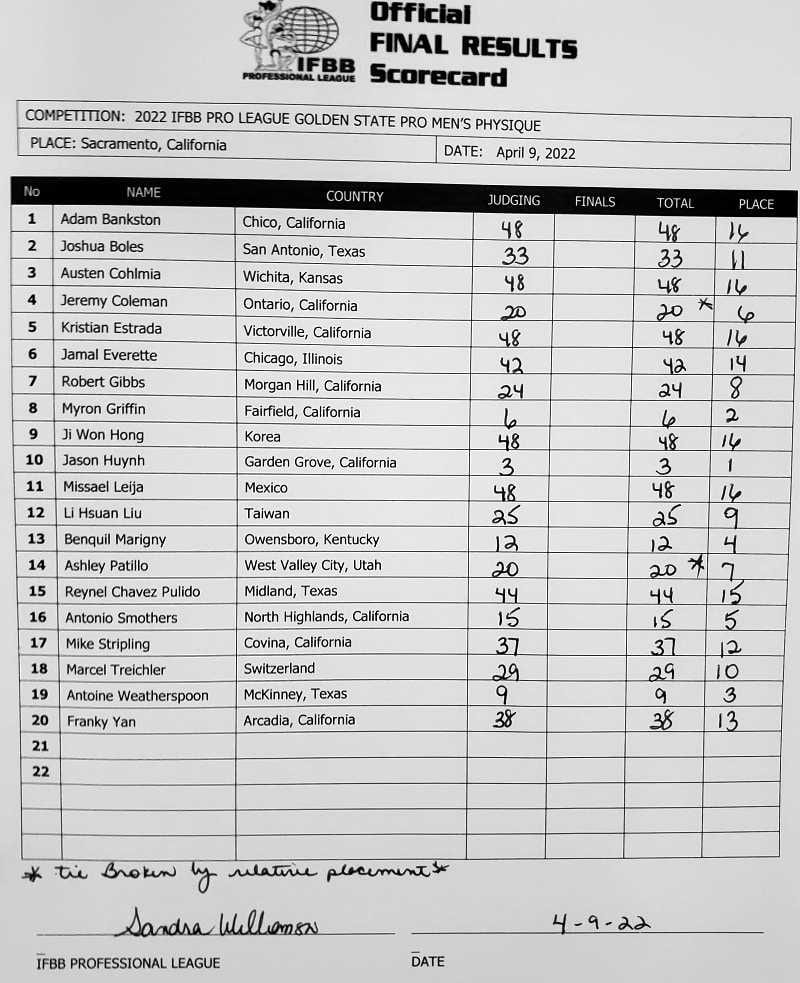 Official
FINAL RESULTS
Scorecard
IFBB
PROFESSIONAL LEAGUE
COMPETITION: 2022 IFBB PRO LEAGUE GOLDEN STATE PRO MEN'S PHYSIQUE
PLACE: Sacramento, California DATE: April 9, 2022
No NAME COUNTRY JUDGING FINALS TOTAL PLACE
1 Adam Bankston Chico, California 48 48 16
2 Joshua Boles San Antonio, Texas 33 33 11
3 Austen Cohlmia Wichita, Kansas 48 48 16
4 Jeremy Coleman Ontario, California 20 20 * 6
5 Kristian Estrada Victorville, California 48 48 16
6 Jamal Everette Chicago, Illinois 42 42 14
7 Robert Gibbs Morgan Hill, California 24 24 8
8 Myron Griffin Fairfield, California 6 6 2
9 Ji Won Hong Korea 48 48 16
10 Jason Huynh Garden Grove, California 3 3 1
11 Missael Leija Mexico 48 48 16
12 Li Hsuan Liu Taiwan 25 25 9
13 Benquil Marigny Owensboro, Kentucky 12 12 4
14 Ashley Patillo West Valley City, Utah 20 20 * 7
15 Reynel Chavez Pulido Midland, Texas 44 44 15
16 Antonio Smothers North Highlands, California 15 15 5
17 Mike Stripling Covina, California 37 37 12
18 Marcel Treichler Switzerland 29 29 10
19 Antoine Weatherspoon McKinney, Texas 9 9 3
20 Franky Yan Arcadia, California 38 38 13
21
22
* tie Broken by relative placement *
Sandra Williamson 4-9-22
IFBB PROFESSIONAL LEAGUE DATE